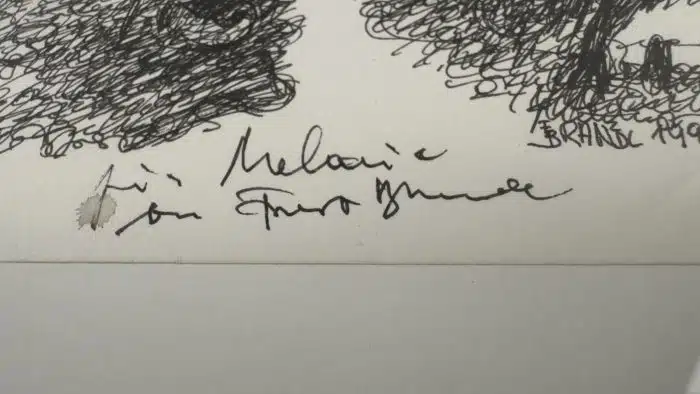 BRANDL 199
für Melanie
von Ernst Brandl